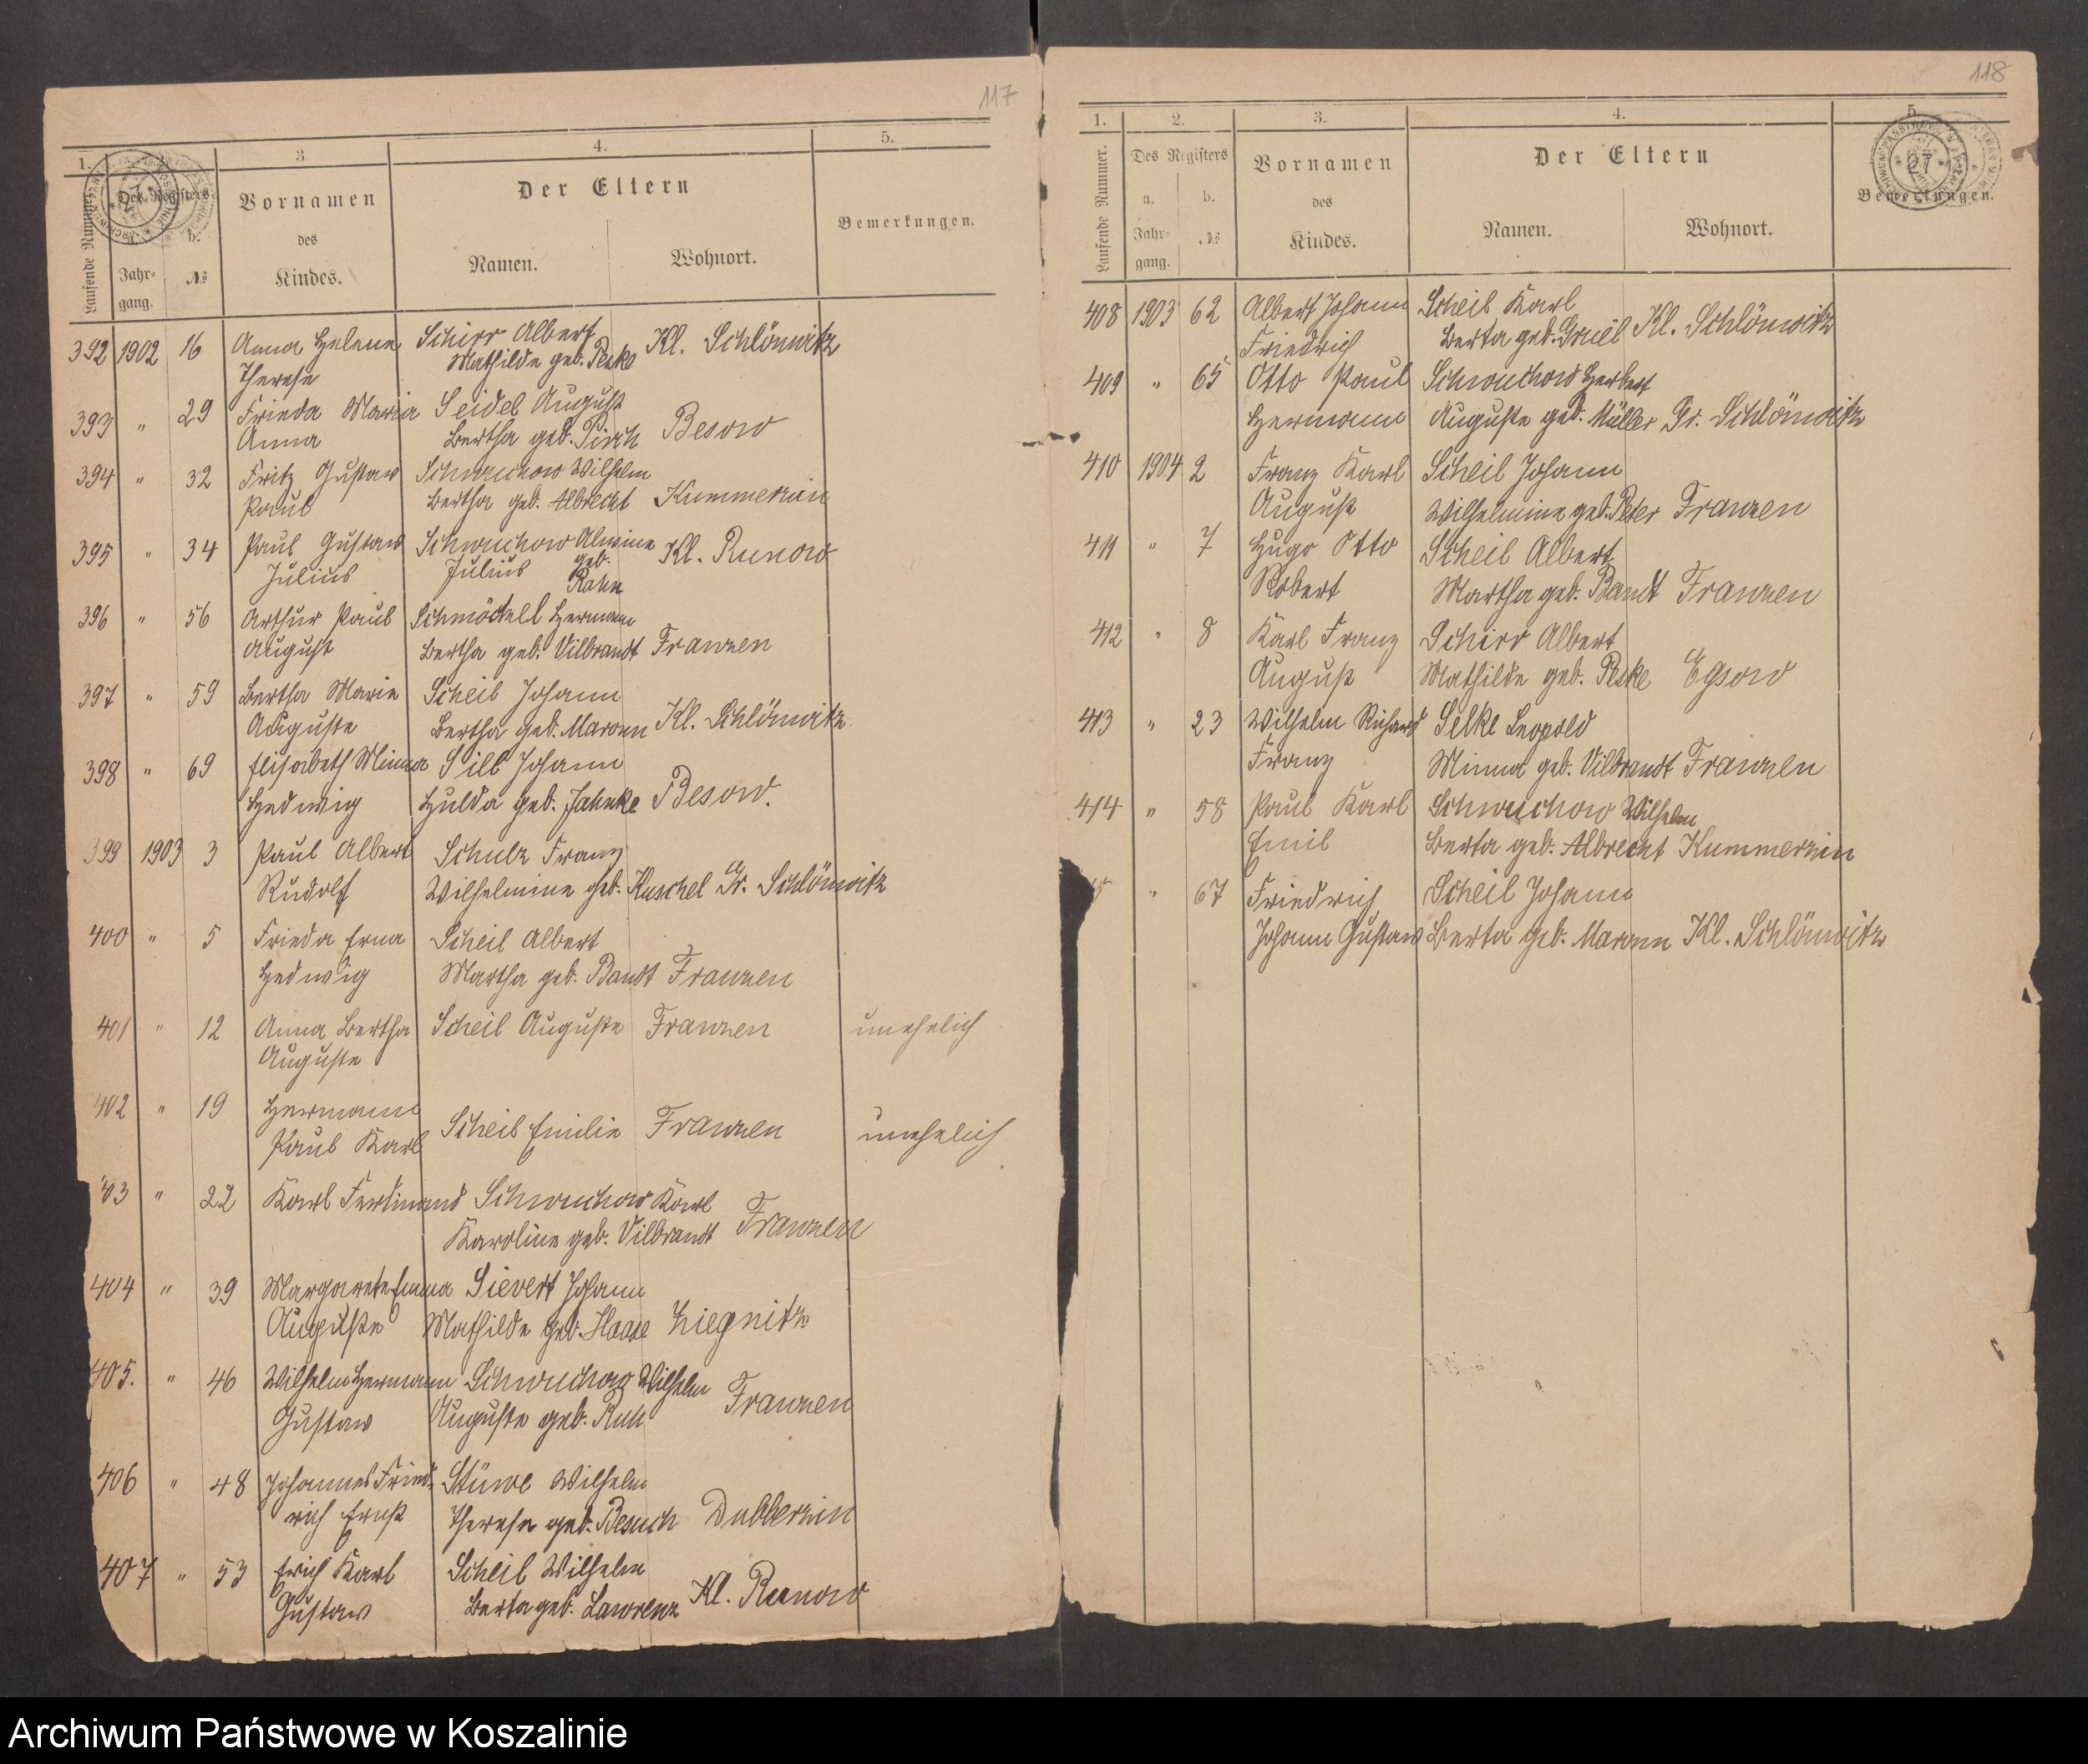 117
1. 3. 4. 5.
Laufende Nummer. Des Registers Vornamen des Kindes. Der Eltern Bemerkungen.
b.
Jahr- gang. № Namen. Wohnort.
392 1902 16 Anna Helene Schirr Albert Kl. Schlönwitz
Therese Mathilde geb. Peske
393 " 29 Frieda Maria Seidel August
Anna Bertha geb. Pirch Besow
394 " 32 Fritz Gustav Schwuchow Wilhelm
Paul Bertha geb. Albrecht Kummerzin
395 " 34 Paul Gustav Schwuchow Alwine Kl. Runow
Julius Julius geb. Rahn
396 " 56 Arthur Paul Schmöckel Hermann
August Bertha geb. Vilbrandt Franzen
397 " 59 Bertha Marie Scheil Johann
Auguste Bertha geb. Maronn Kl. Schlönwitz
398 " 69 Elisabeth Minna Sill Johann
Hedwig Hulda geb. Jahnke Besow.
399 1903 3 Paul Albert Schulz Franz
Rudolf Wilhelmine geb. Kuschel Gr. Schlönwitz
400 " 5 Frieda Erna Scheil Albert
Hedwig Martha geb. Bandt Franzen
401 " 12 Anna Bertha Scheil Auguste Franzen unehelich
Auguste
402 " 19 Hermann
Paul Karl Scheil Emilie Franzen unehelich
403 " 22 Karl Ferdinand Schwuchow Karl
Karoline geb. Vilbrandt Franzen
404 " 39 Margarete Emma Sievert Johann
Auguste Mathilde geb. Haase Ziegnitz
405. " 46 Wilhelm Hermann Schwuchow Wilhelm
Gustav Auguste geb. Ruh Franzen
406 " 48 Johannes Fried- Stüwe Wilhelm
rich Ernst Therese geb. Besuch Dubberzin
407 " 53 Erich Karl Scheil Wilhelm
Gustav Berta geb. Lawrenz Kl. Runow
118
1. 2. 3. 4. 5.
Laufende Nummer. Des Registers Vornamen des Kindes. Der Eltern Bemerkungen.
a. b.
Jahr- gang. № Namen. Wohnort.
27
408 1903 62 Albert Johann Scheil Karl
Friedrich Berta geb. Gruel Kl. Schlönwitz
409 " 65 Otto Paul Schwuchow Herbert
Hermann Auguste geb. Müller Gr. Schlönwitz
410 1904 2 Franz Karl Scheil Johann
August Wilhelmine geb. Peter Franzen
411 " 7 Hugo Otto Scheil Albert
Robert Martha geb. Bandt Franzen
412 " 8 Karl Franz Schirr Albert
August Mathilde geb. Peske Egsow
413 " 23 Wilhelm Richard Selke Leopold
Franz Minna geb. Vilbrandt Franzen
414 " 58 Paul Karl Schwuchow Wilhelm
Emil Berta geb. Albrecht Kummerzin
5 " 67 Friedrich Scheil Johann
Johann Gustav Berta geb. Maronn Kl. Schlönwitz
Archiwum Państwowe w Koszalinie